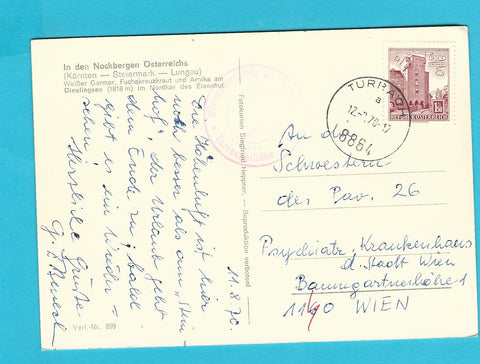 In den Nockbergen Österreichs
(Kärnten — Steiermark — Lungau)
Weißer Germer, Fuchskreuzkraut und Arnika am
Dieslingsee (1818 m) im Nordkar des Eisenhut
11.8.70.
Die Höhenluft ist hier
noch besser als am „Stein-
hof“, der Urlaub geht
dem Ende zu, bald
gibt es ein Wieder-
sehen!
Herzliche Grüße
G.
Verl.-Nr. 899
Fotokarten Siegfried Heppner. — Reproduktion verboten!
Turracherhöhe
TURRACH
a
12.-.70-17
8864
1.50
REPUBLIK ÖSTERREICH
An die
Schwestern
des Pav. 26
Psychiatr. Krankenhaus
d. Stadt Wien
Baumgartnerhöhe 1
1140 WIEN